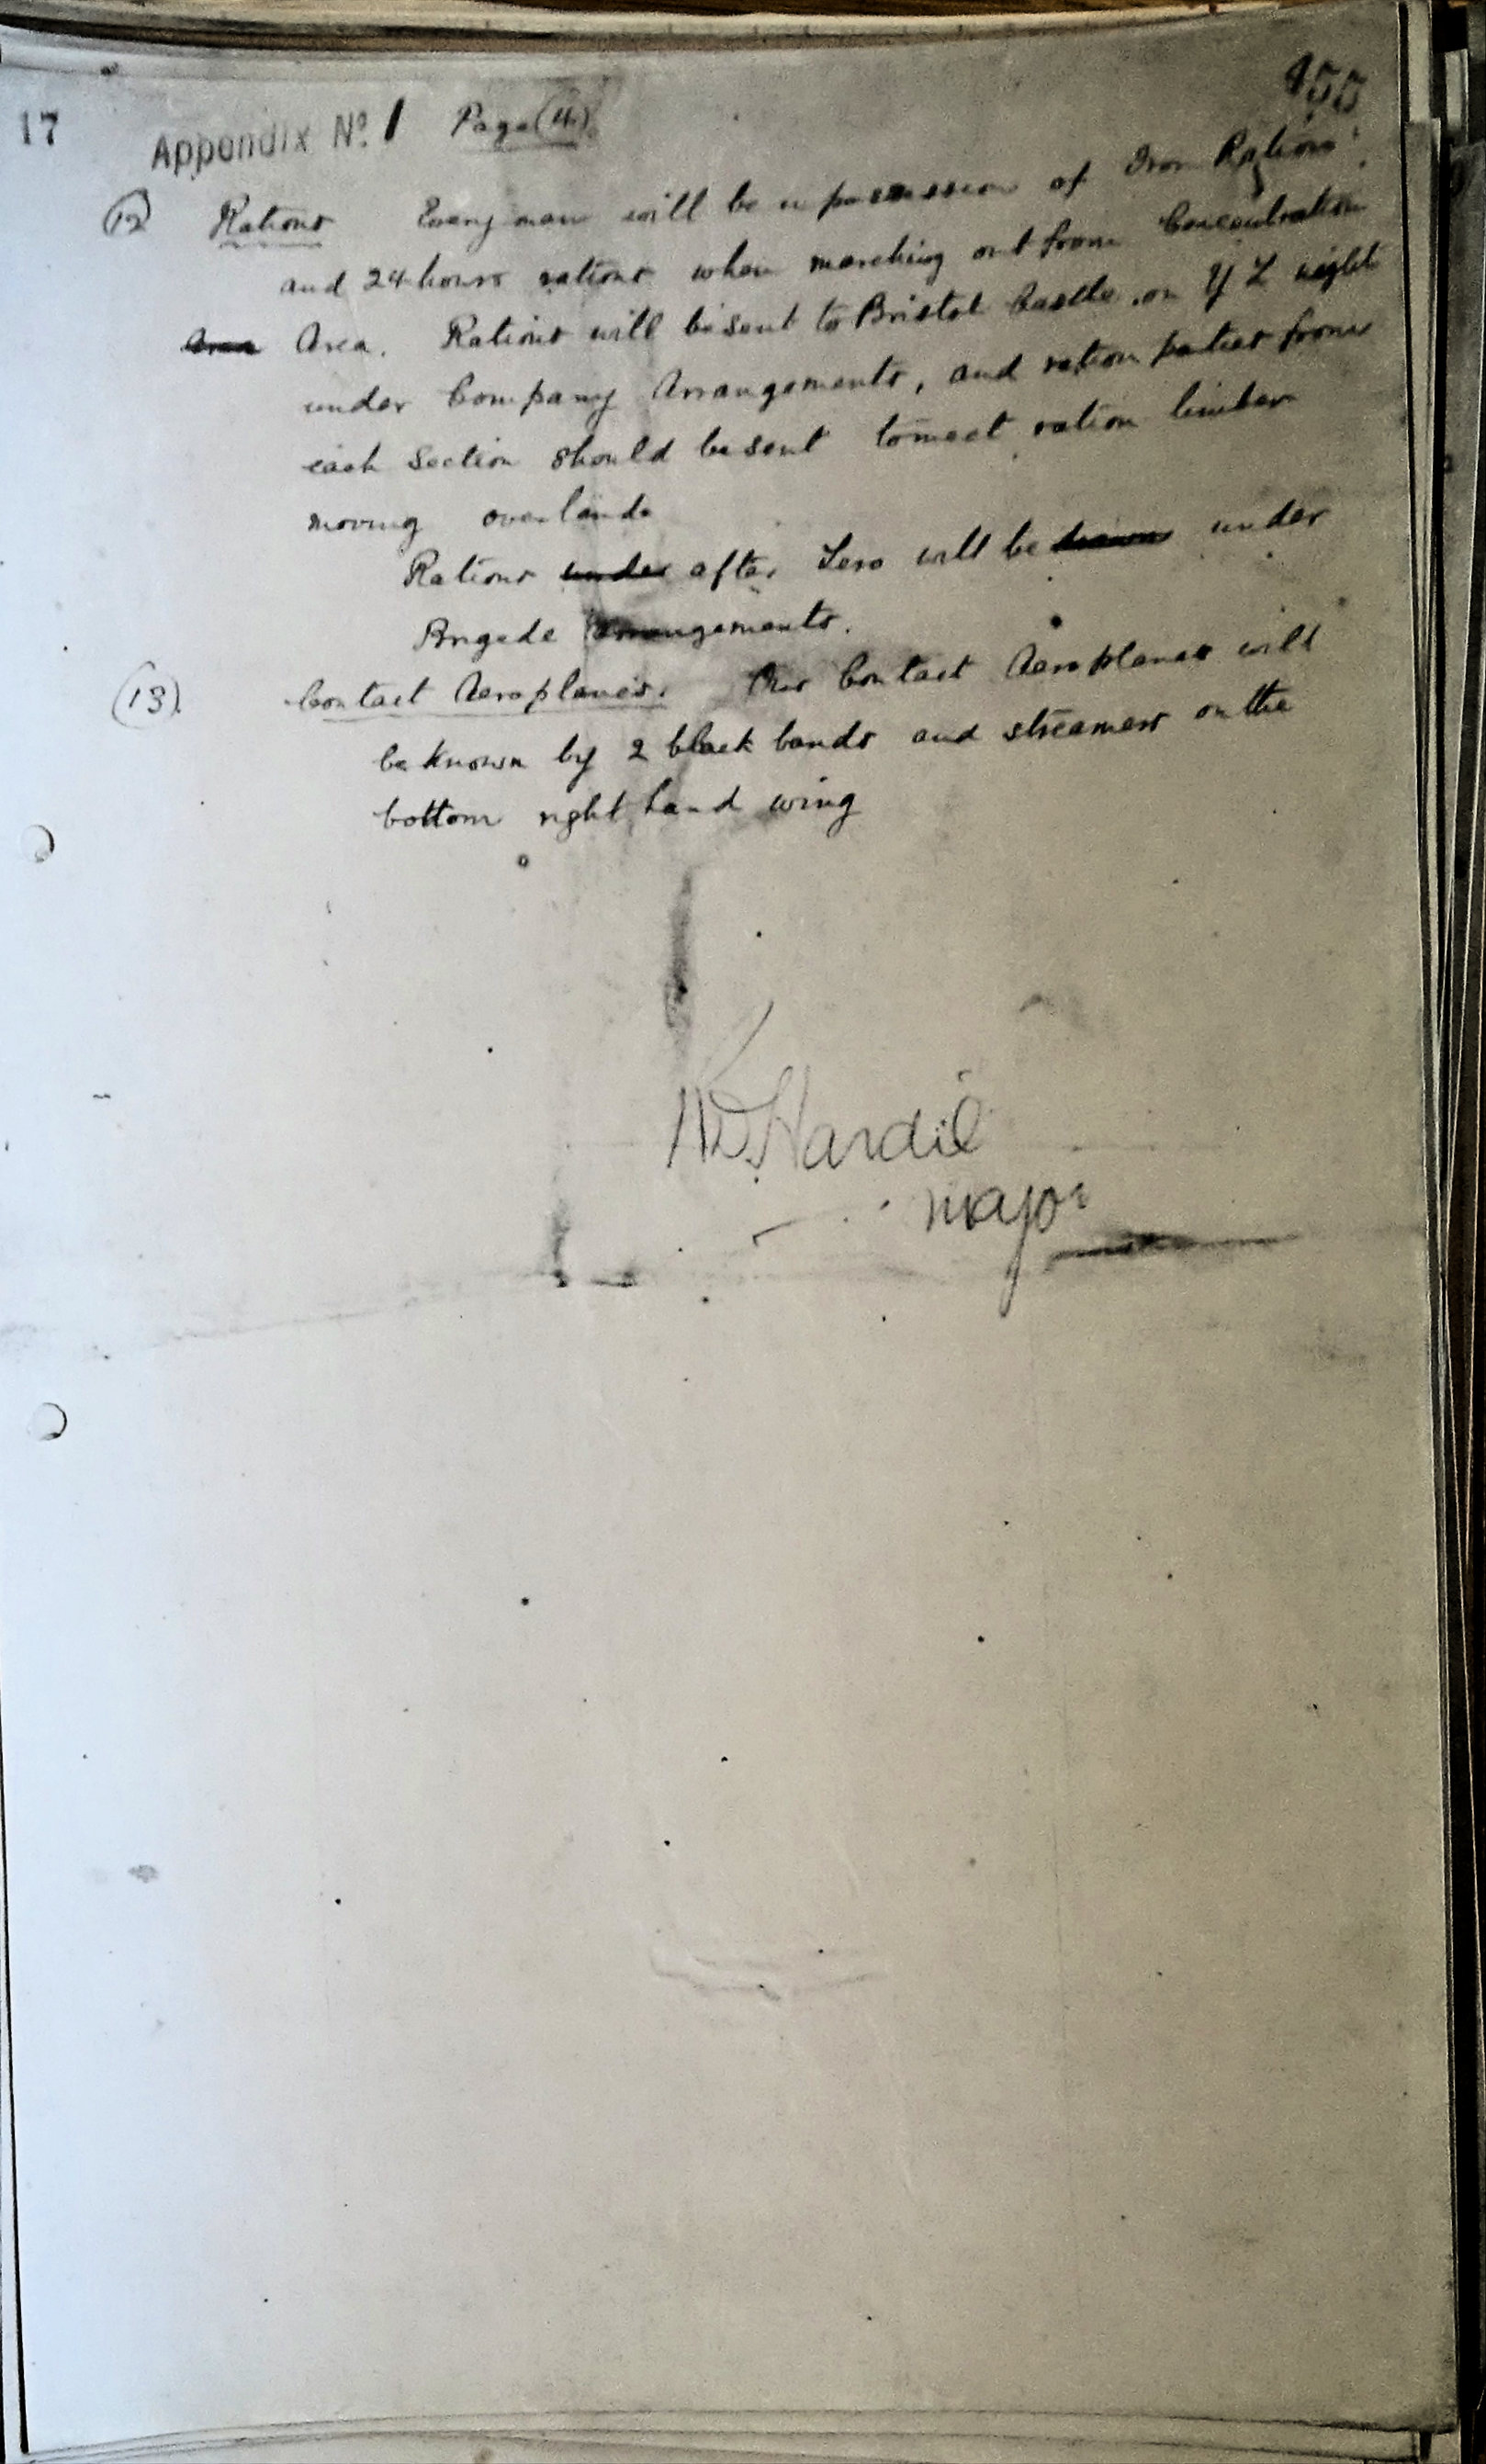 17
455
Appendix No. 1 Page (4).
(12) Rations Every man will be in possession of Iron Rations
and 24 hours rations when marching out from Concentration
Area Area. Rations will be sent to Bristol Castle on Y Z night
under Company Arrangements, and ration parties from
each Section should be sent to meet ration limber
moving overland.
Rations under after Zero will be drawn under
Brigade Arrangements.
(13). Contact Aeroplanes. Our Contact Aeroplanes will
be known by 2 black bands and streamers on the
bottom right hand wing
Hardie
Major